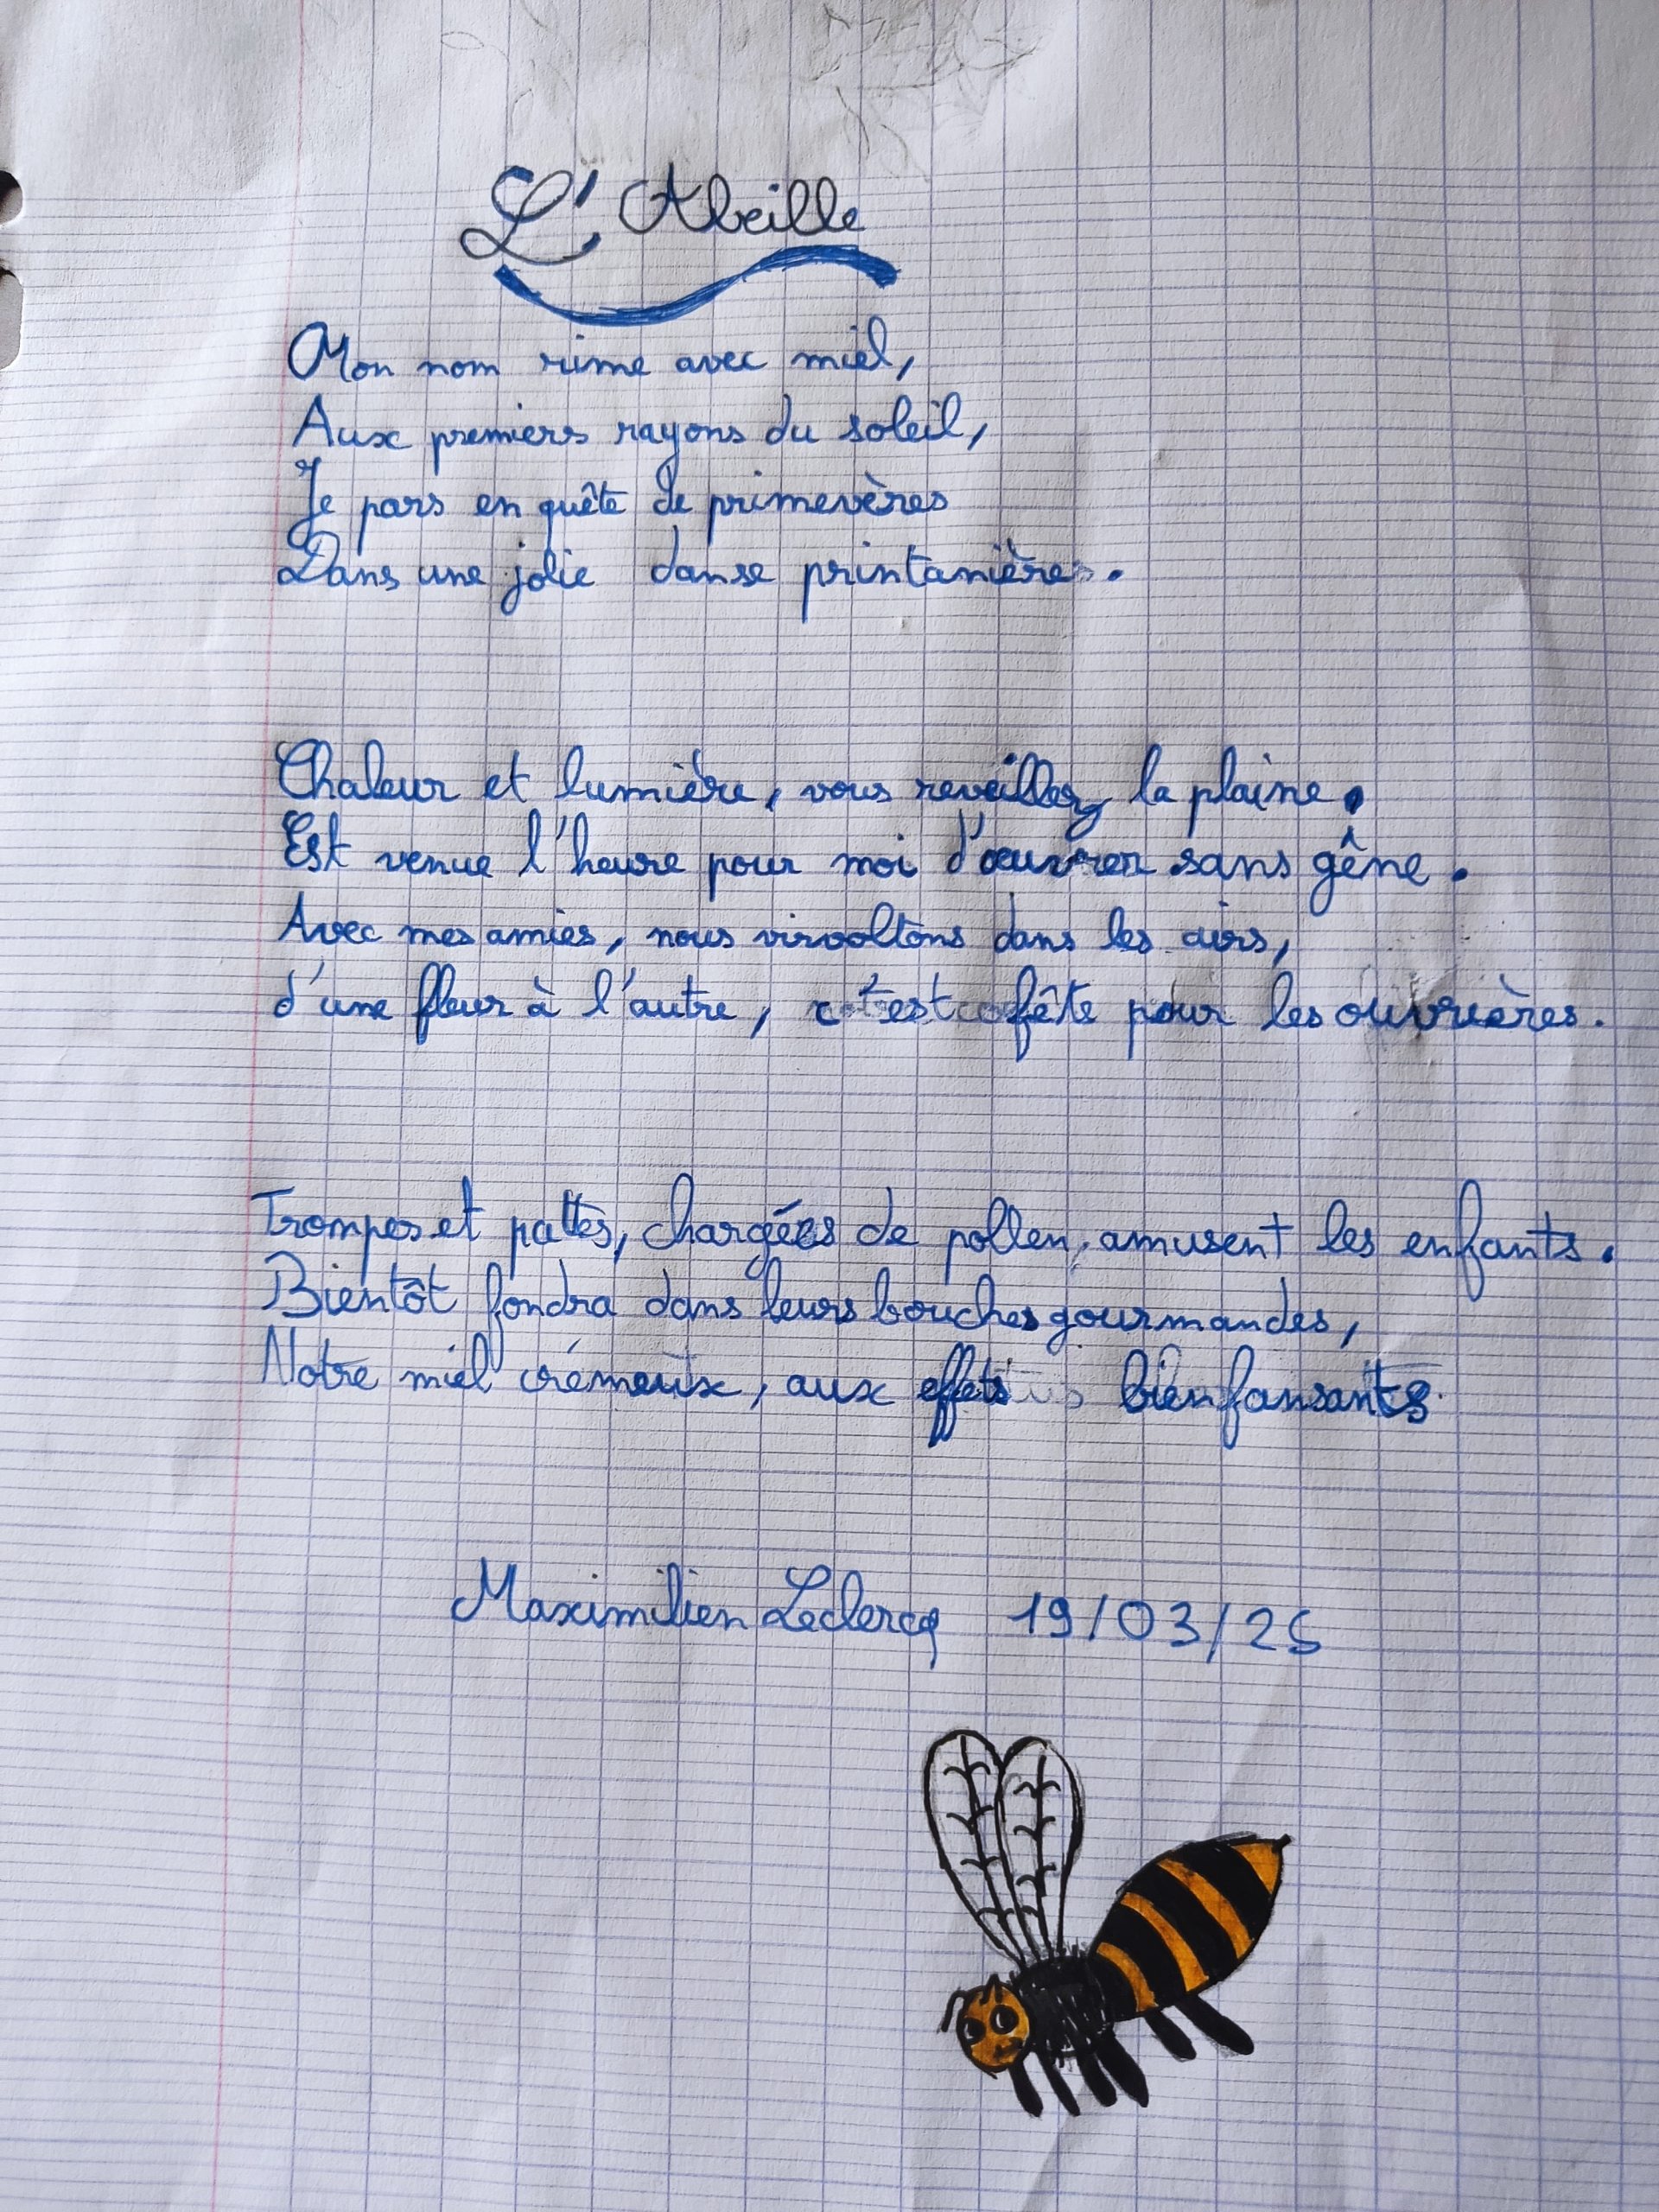 L'Abeille
Mon nom rime avec miel,
Aux premiers rayons du soleil,
Je pars en quête de primevères
Dans une jolie danse printanière.
Chaleur et lumière, vous reveillez la plaine.
Est venue l'heure pour moi d'œuvrer sans gêne.
Avec mes amies, nous virvoltons dans les airs,
d'une fleur à l'autre, c'est fête pour les ouvrières.
Trompes et pattes, chargées de pollen, amusent les enfants.
Bientôt fondra dans leurs bouches gourmandes,
Notre miel crémeux, aux effets bienfansants.
Maximilien Leclercq 19/03/25